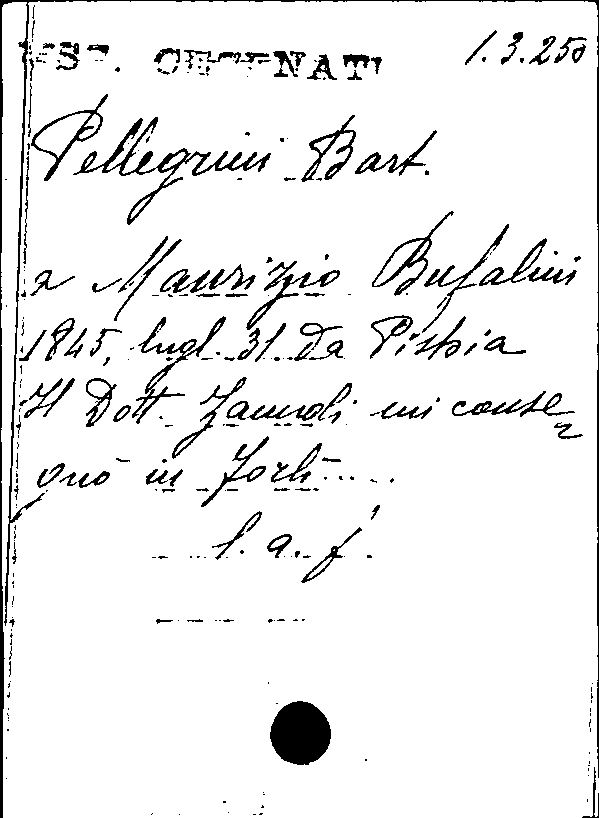 MSS. CESENATI 1.3.250
Pellegrini Bart.
a Maurizio Bufalini
1845, lugl. 31. da Pistoia
Il Dott. mi conse=
gnò in Forlì.....
l. a. f.